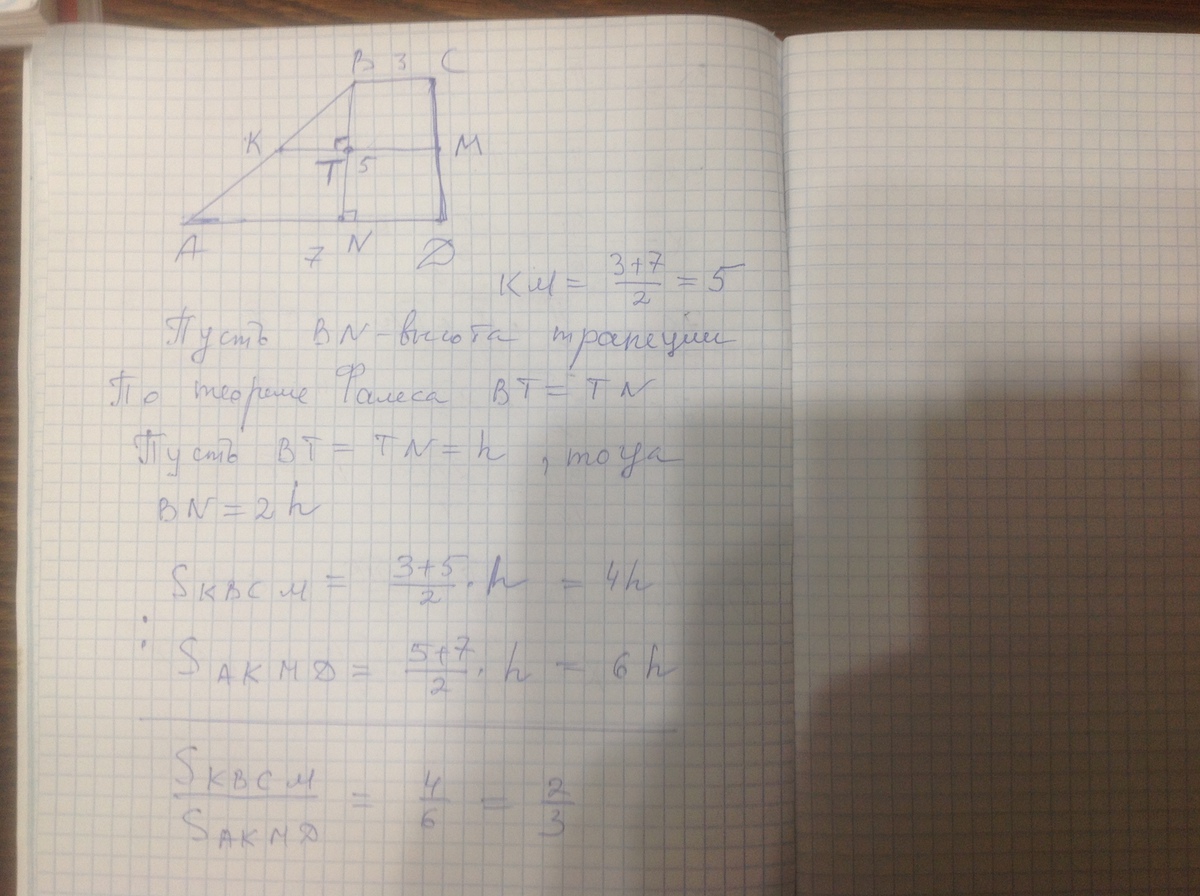 B 3 C
K T 5 M
A 7 N D
KM = \frac{3+7}{2} = 5
Пусть BN - высота трапеции
По теореме Фалеса BT = TN
Пусть BT = TN = h , тогда
BN = 2h
S_{KBCM} = \frac{3+5}{2} \cdot h = 4h
:
S_{AKMD} = \frac{5+7}{2} \cdot h = 6h
\frac{S_{KBCM}}{S_{AKMD}} = \frac{4}{6} = \frac{2}{3}